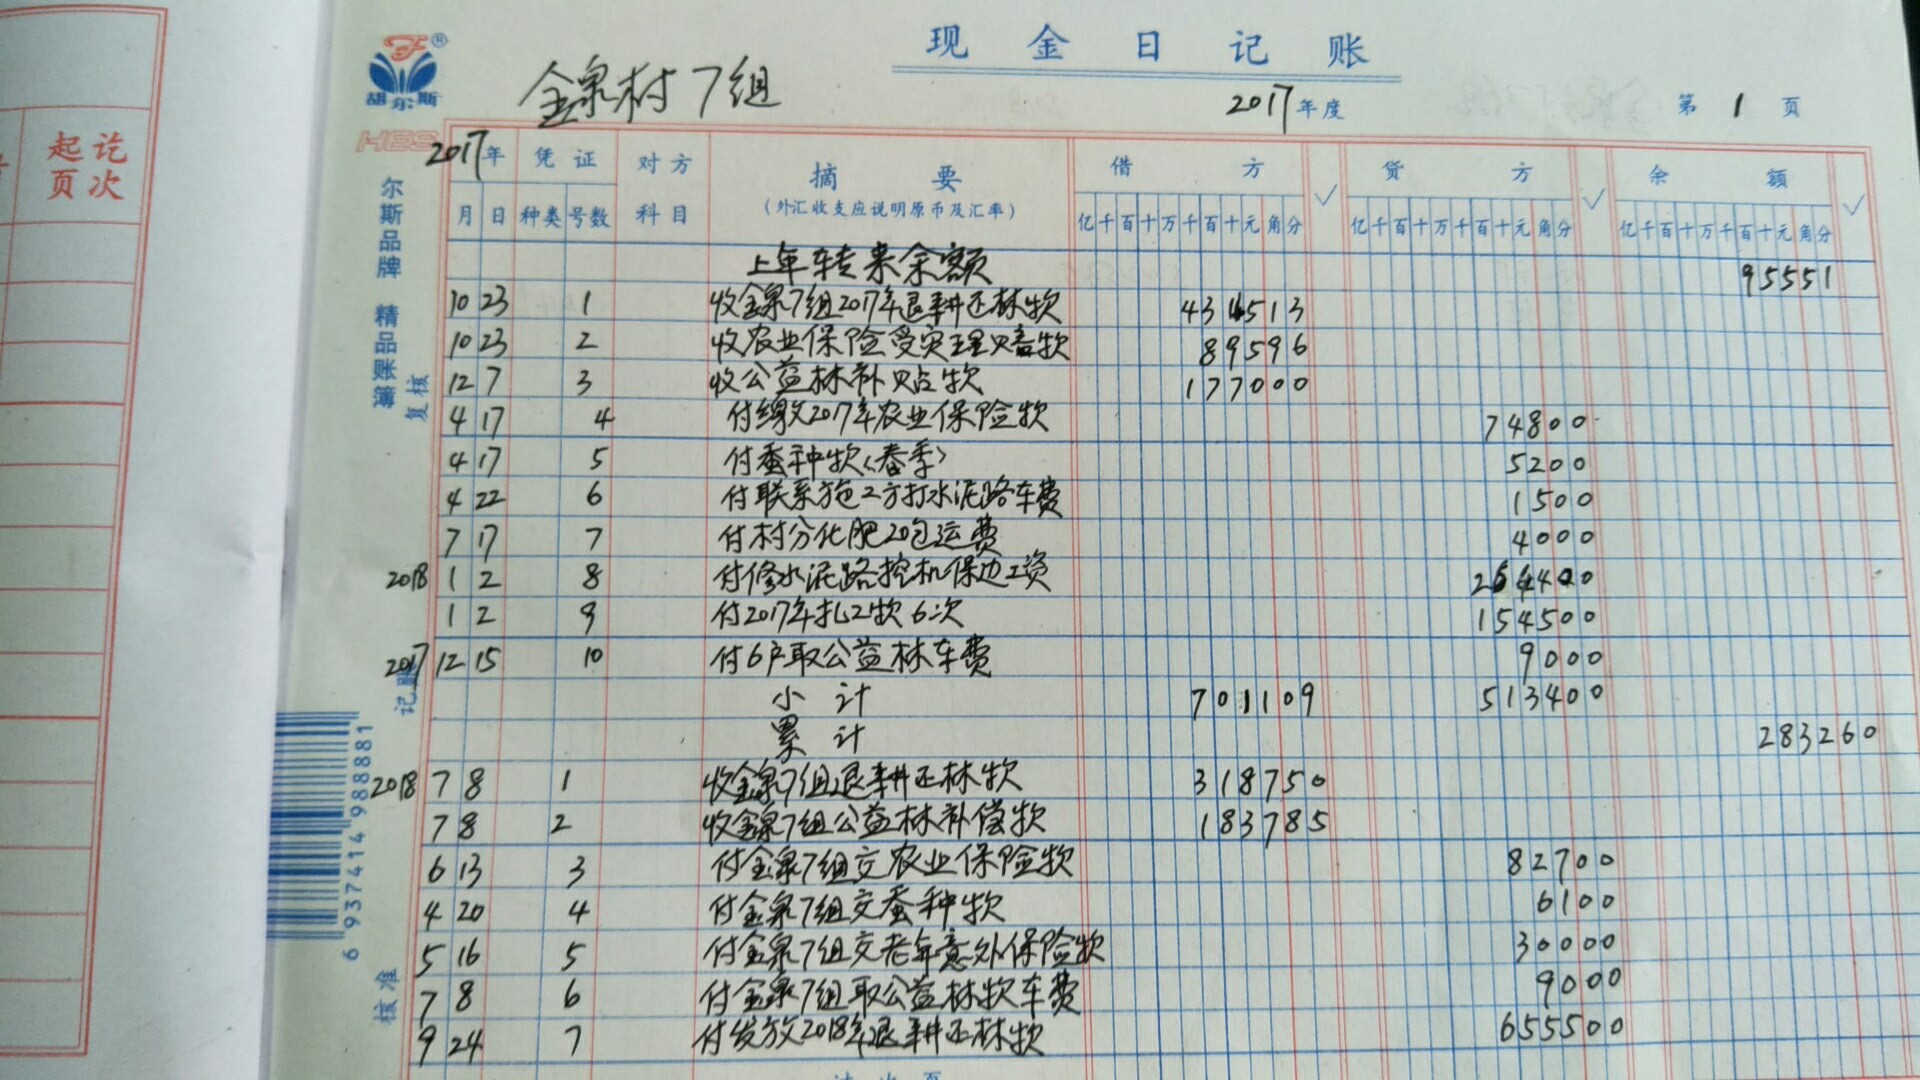 胡尔斯 ®
HES
现金日记账
金泉村7组
2017年度
第 1 页
起讫页次
尔斯品牌 精品账簿
复核
记账
核准
6 937414 988881
2017年 凭证 对方科目 摘要 借方 √ 贷方 √ 余额 √
月 日 种类 号数 (外汇收支应说明原币及汇率) 亿千百十万千百十元角分 亿千百十万千百十元角分 亿千百十万千百十元角分
上年转来余额 95551
10 23 1 收金泉7组2017年退耕还林款 434513
10 23 2 收农业保险受灾理赔款 89596
12 7 3 收公益林补贴款 177000
4 17 4 付缴交2017年农业保险款 74800
4 17 5 付蚕种款(春季) 5200
4 22 6 付联系施工方打水泥路车费 1500
7 17 7 付村分化肥20包运费 4000
2018 1 2 8 付修水泥路挖机保边工资 264400
1 2 9 付2017年扎工款6次 154500
2017 12 15 10 付6户取公益林车费 9000
小计 701109 513400
累计 283260
2018 7 8 1 收金泉7组退耕还林款 318750
7 8 2 收金泉7组公益林补偿款 183785
6 13 3 付金泉7组交农业保险款 82700
4 20 4 付金泉7组交蚕种款 6100
5 16 5 付金泉7组交老年意外保险款 30000
7 8 6 付金泉7组取公益林款车费 9000
9 24 7 付发放2018年退耕还林款 655500